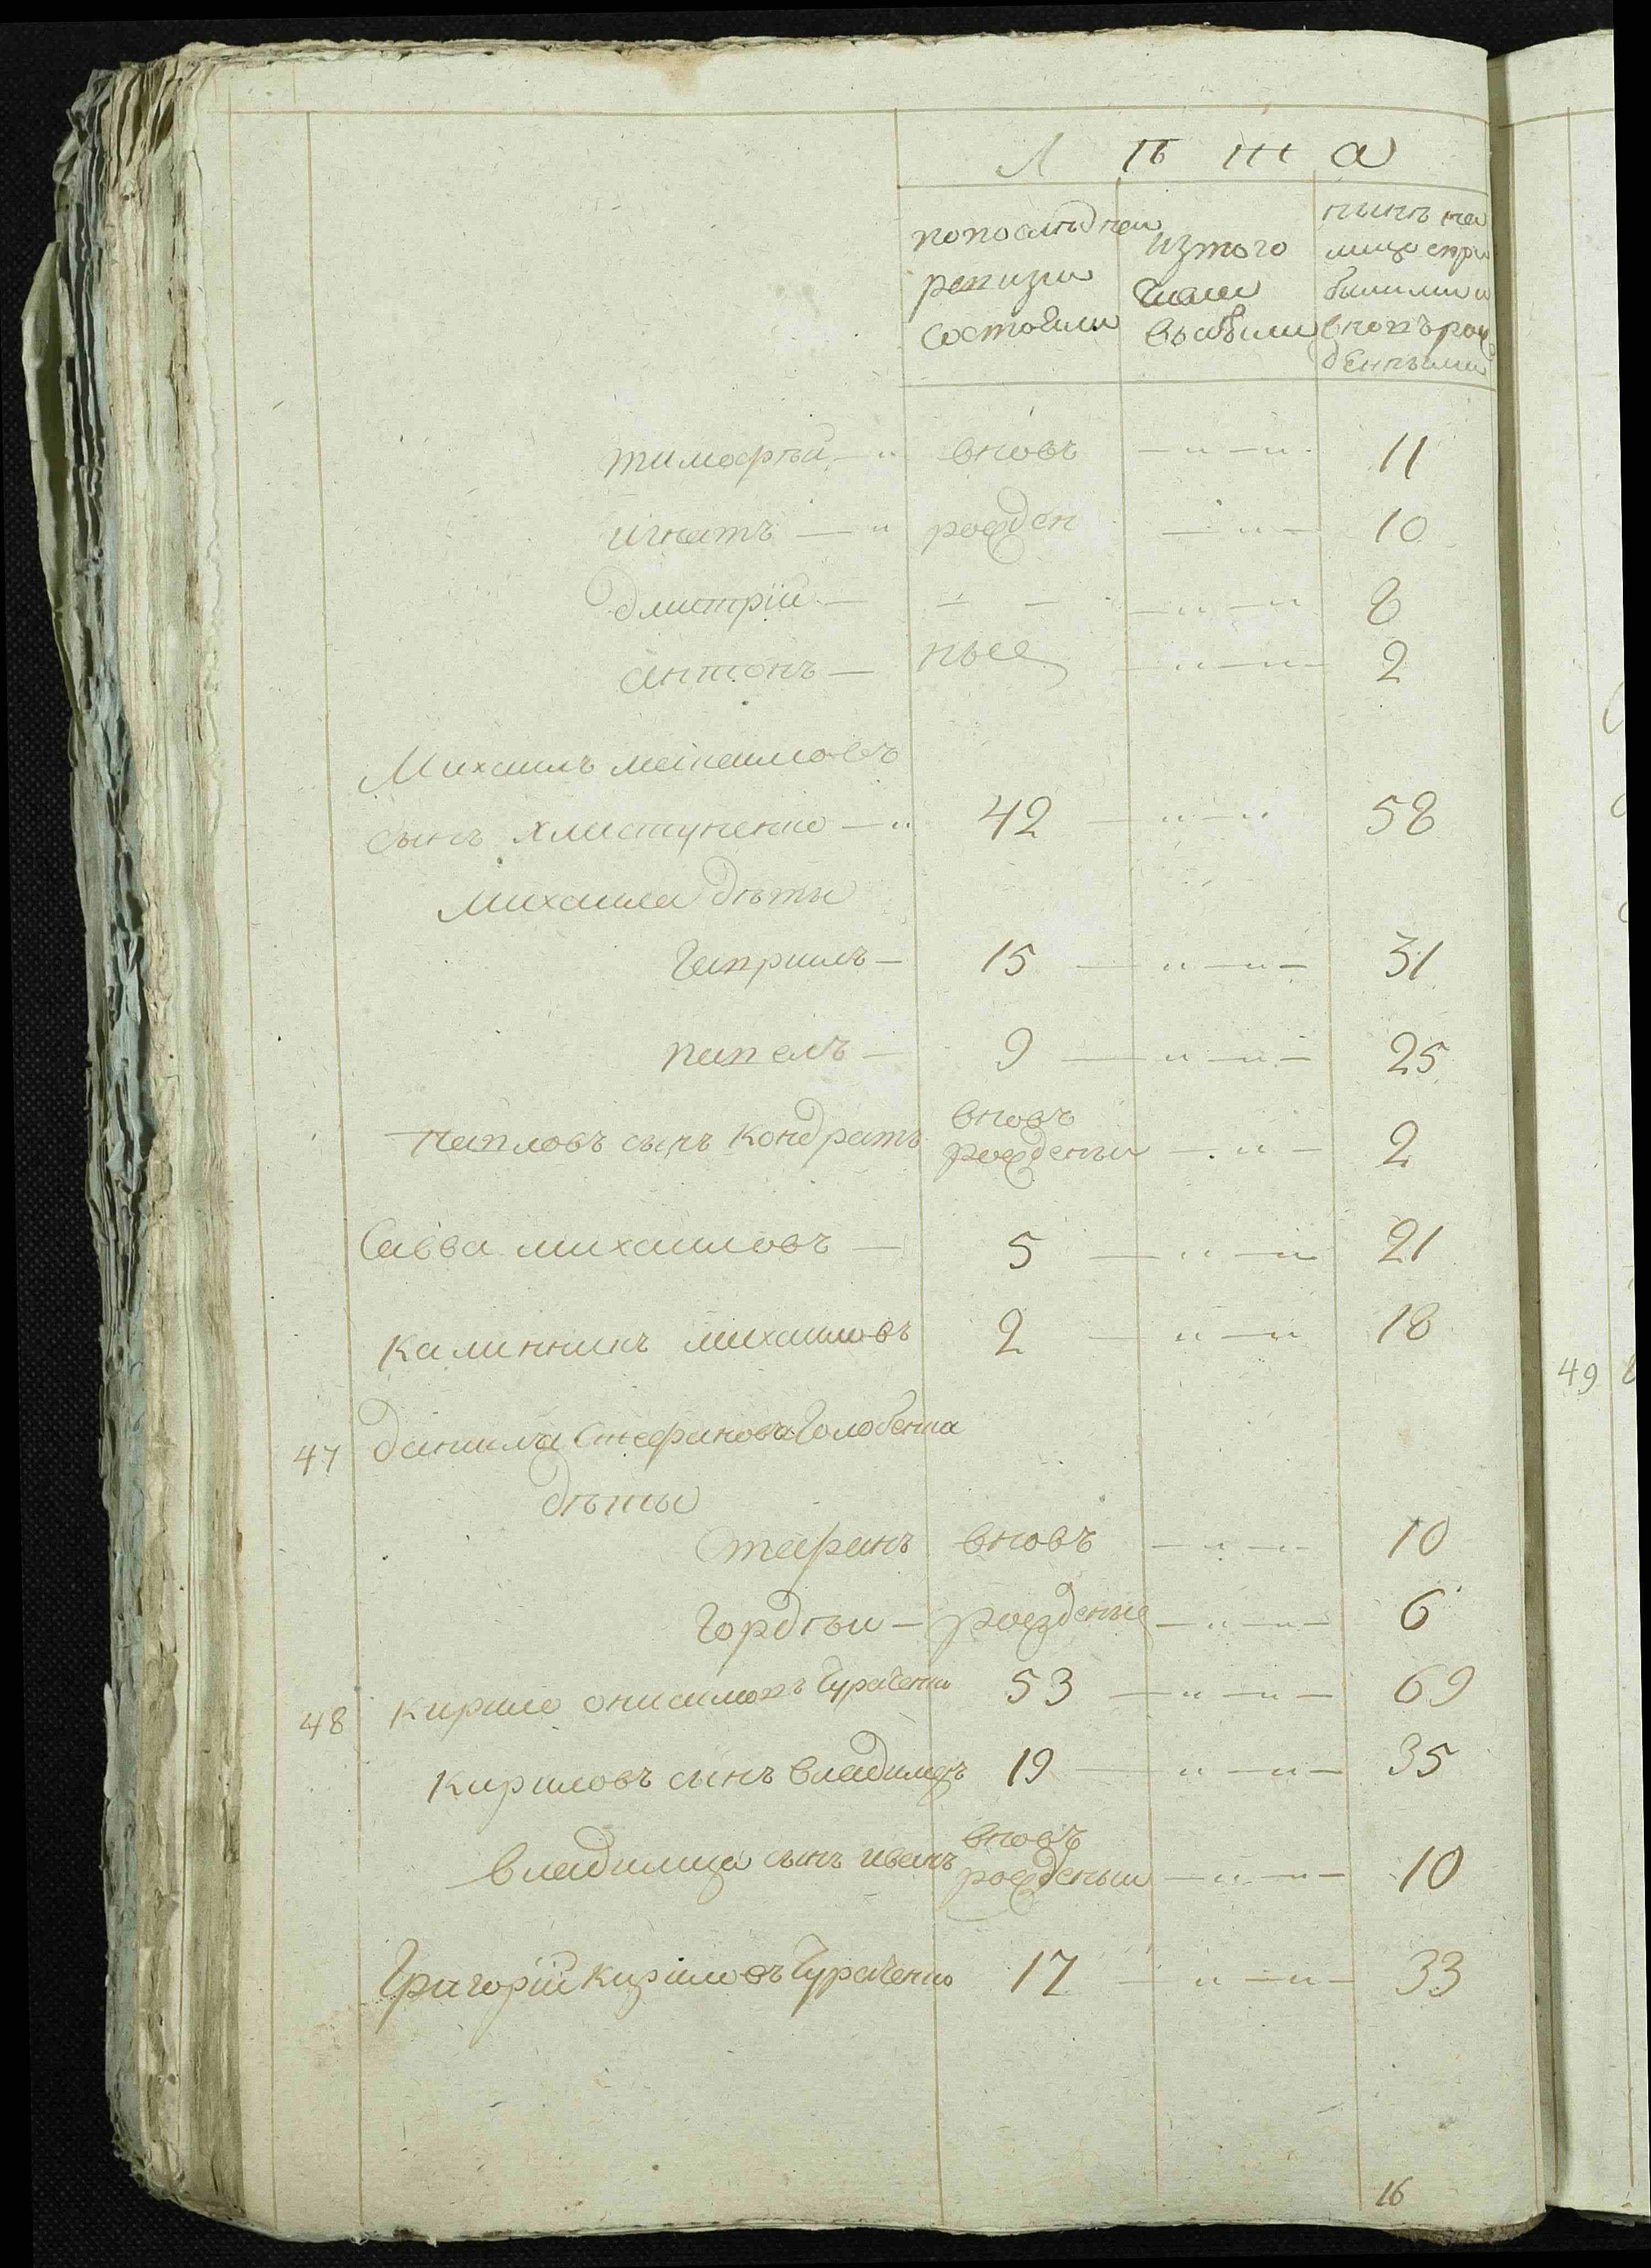 Лѣта
попослѣдней ревизiи состояли
изтого числа выбыли
нынѣ на лицо спри былыми и вновъ рож денными
Тимофѣй — " вновъ — " — " 11
игнатъ — " рожден — " — 10
Дмитрiй — — — — " — " 8
антонъ — ные — " — " — 2
Михаилъ михаиловъ
сынъ хлистуненко — " 42 — " — " 58
михаила дѣти
Гаврилъ — 15 — " — " — 31
павелъ — 9 — " — " — 25
павловъ сынъ Кондратъ вновъ рожденыи — " — 2
Савва михаиловъ — 5 — " — " 21
Калинникъ михаиловъ 2 — " — " 18
47 данила Стефанова Голобенка
дѣти
Стефанъ вновъ — " — 10
Гордѣи — рожденые — " — " — 6
48 Кирило онисимовъ Чураченко 53 — " — " — 69
Кириловъ сынъ владимеръ 19 — " — " — 35
владимира сынъ иванъ вновъ рожденыи — " — " — 10
Григорiй Кириловъ Чураченко 17 — " — " — 33
16
49